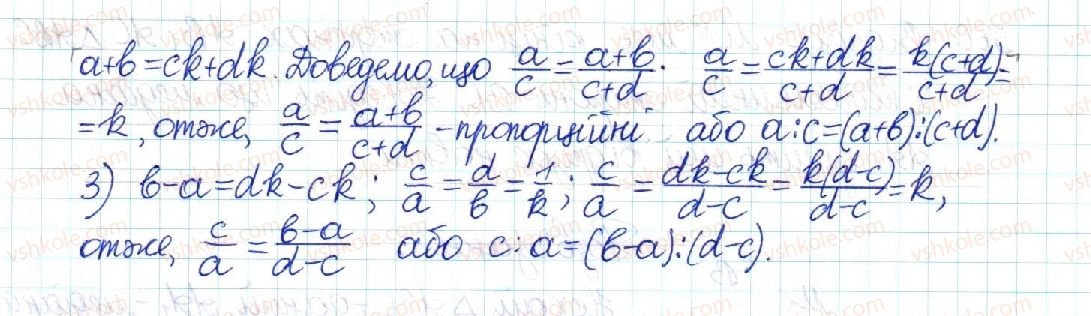 a+b=ck+dk. Доведемо, що a/c = (a+b)/(c+d). a/c = (ck+dk)/(c+d) = k(c+d)/(c+d) =
=k, отже, a/c = (a+b)/(c+d) - пропорційні або a:c=(a+b):(c+d).
3) b-a=dk-ck; c/a = d/b = 1/k; c/a = (dk-ck)/(d-c) = k(d-c)/(d-c) = k,
отже, c/a = (b-a)/(d-c) або c:a=(b-a):(d-c).